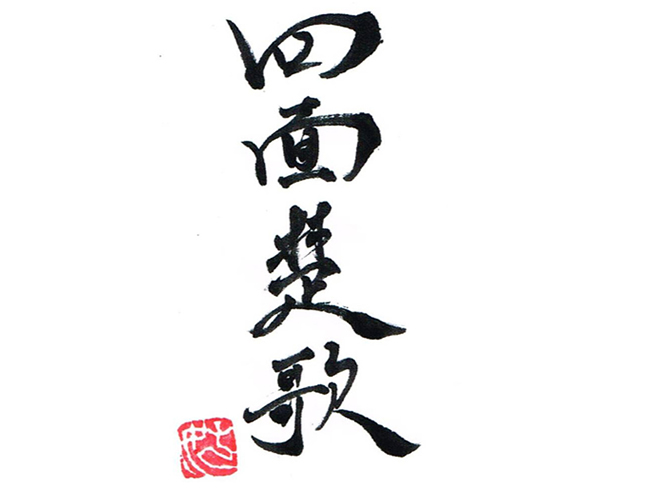 四面楚歌